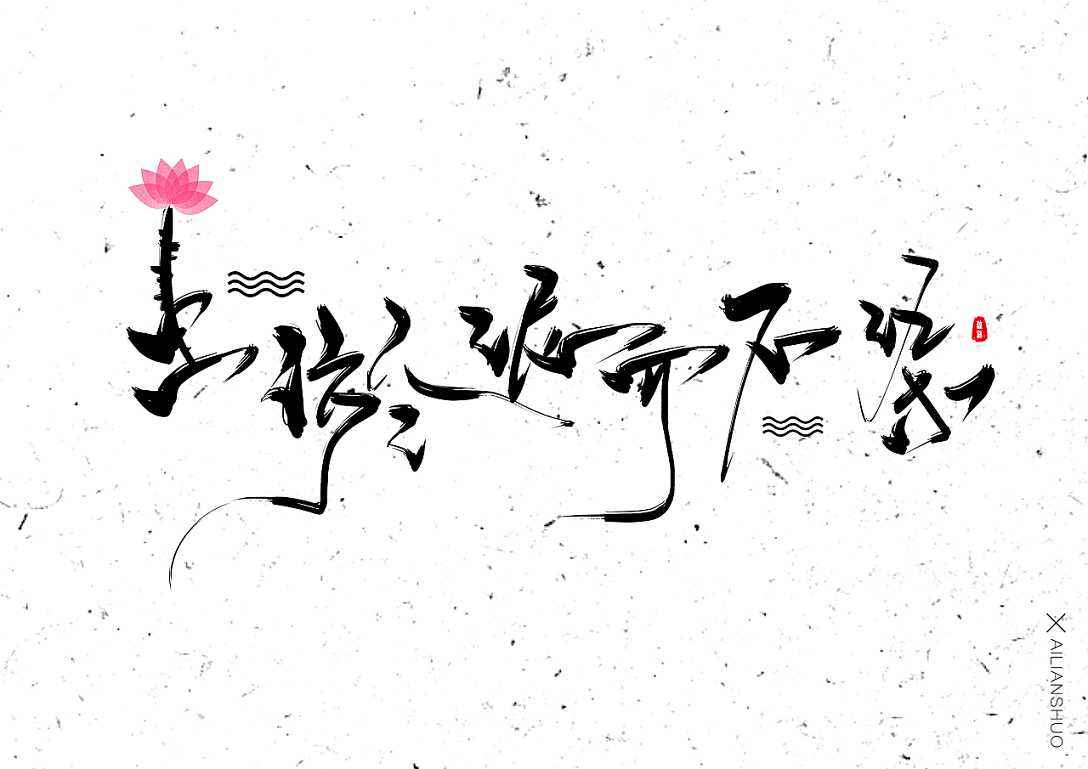 出淤泥而不染
AILIANSHUO